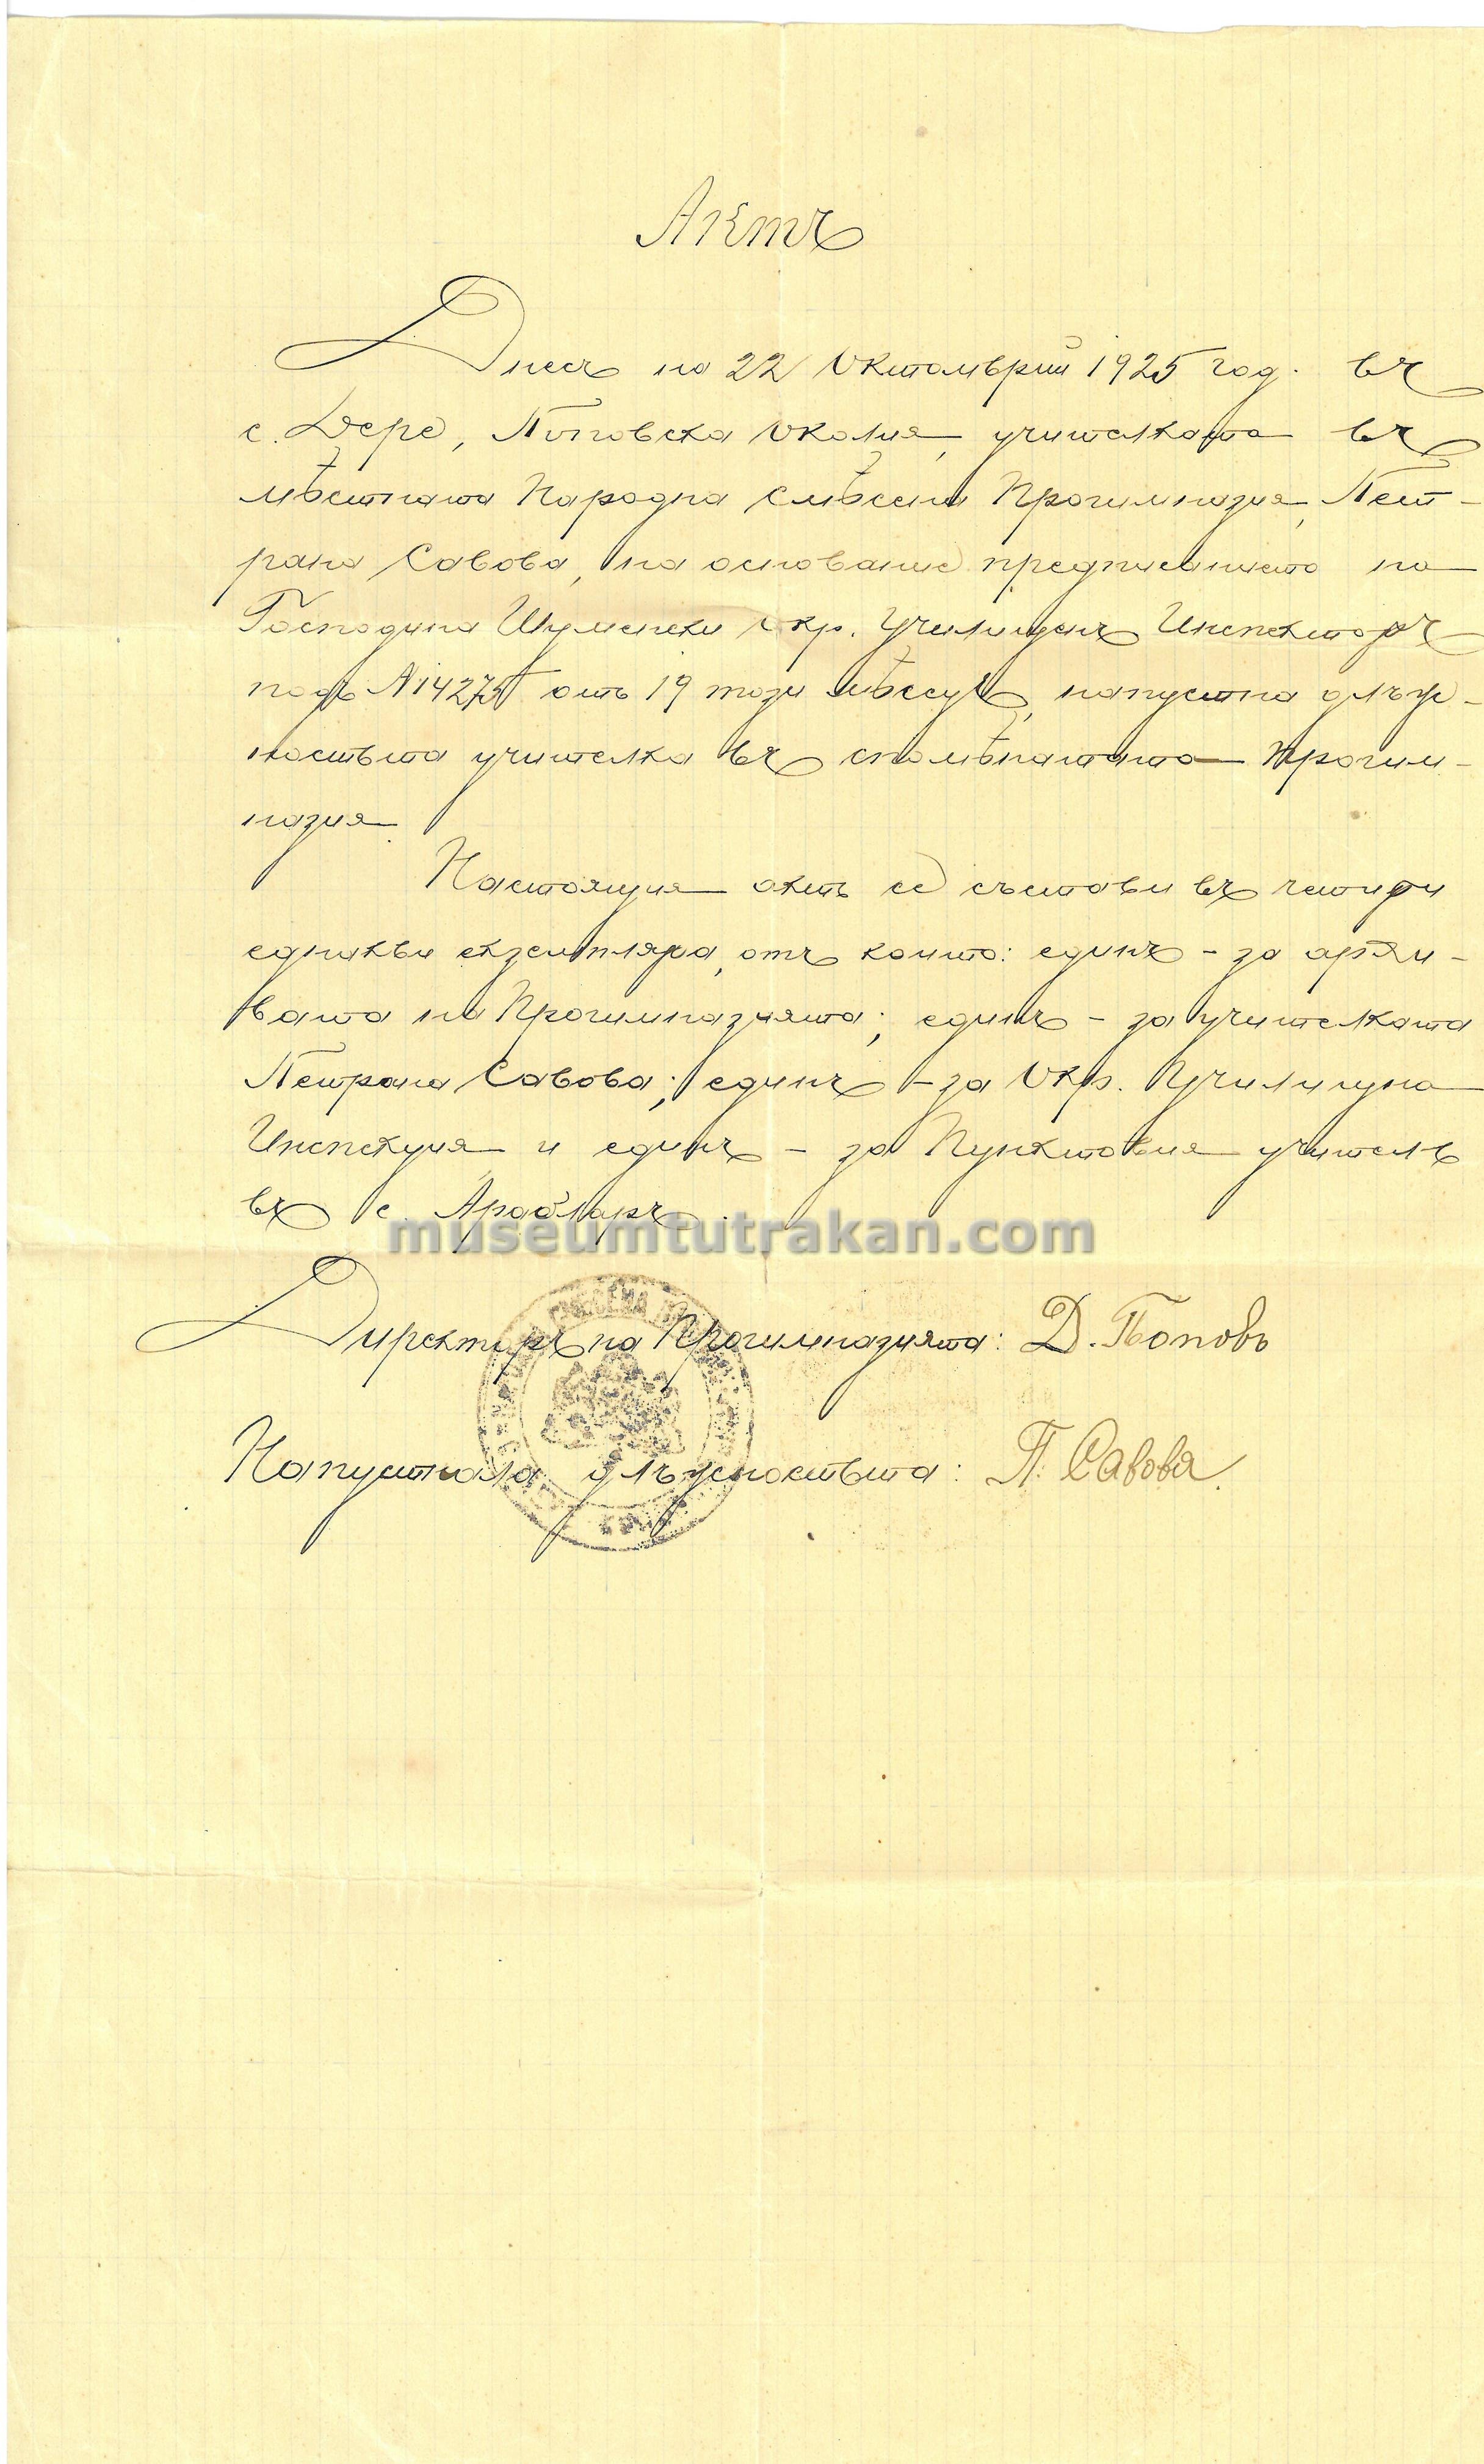 Актъ
Днесъ на 22 Октомврий 1925 год. въ
с. Дере, Поповска околия, учителката въ
мѣстната Народна смѣсена Прогимназия, Пет-
рана Савова, на основание предписанието на
Господина Шуменски Окр. Училищенъ Инспекторъ
подъ № 14275 отъ 19 този мѣсецъ, напустна длъж-
ностьта учителка въ споменатата прогим-
назия.
Настоящия актъ се състави въ четири
еднакви екземпляра, отъ които: единъ - за архи-
вата на Прогимназията; единъ - за учителката
Петрана Савова; единъ - за Окр. Училищна
Инспекция и единъ - за Пунктовия учитель
въ с. Арабларъ.
museumtutrakan.com
Директоръ на Прогимназията: Д. Поповъ
Напустнала длъжностьта: П. Савова.